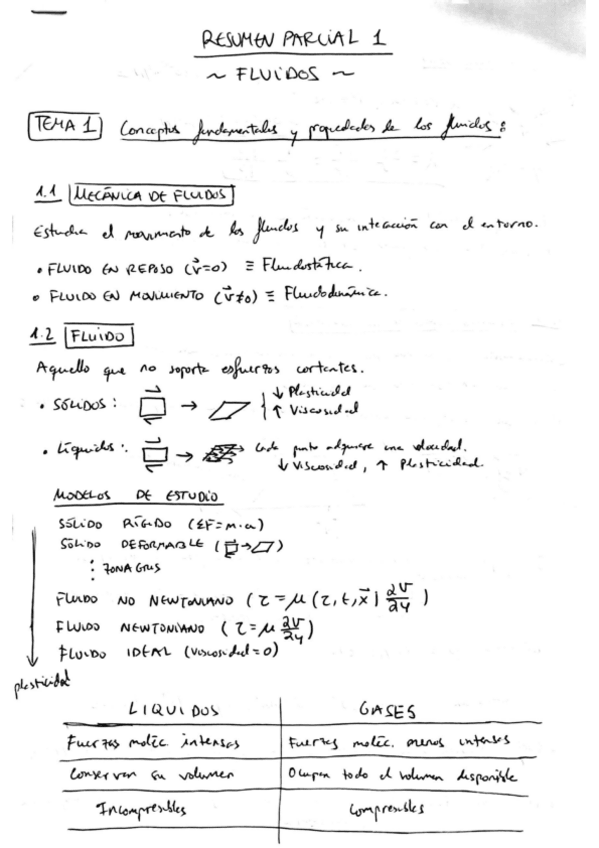 RESUMEN PARCIAL 1
~ FLUIDOS ~
TEMA 1 Conceptos fundamentales y propiedades de los fluidos:
1.1 MECÁNICA DE FLUIDOS
Estudia el movimiento de los fluidos y su interacción con el entorno.
• FLUIDO EN REPOSO (v⃗=0) ≡ Fluidostática.
• FLUIDO EN MOVIMIENTO (v⃗≠0) ≡ Fluidodinámica.
1.2 FLUIDO
Aquello que no soporta esfuerzos cortantes.
• SÓLIDOS: → ↓ Plasticidad
↑ Viscosidad
• Líquidos: → cada punto adquiere una velocidad.
↓ Viscosidad, ↑ Plasticidad.
MODELOS DE ESTUDIO
SÓLIDO RÍGIDO (ΣF=m·a)
SÓLIDO DEFORMABLE ( → )
ZONA GRIS
FLUIDO NO NEWTONIANO (τ = μ(τ,t,x⃗) ∂v/∂y)
FLUIDO NEWTONIANO (τ=μ ∂v/∂y)
FLUIDO IDEAL (viscosidad=0)
plasticidad
LIQUIDOS GASES
Fuerzas molec. intensas Fuerzas molec. menos intensas
Conservan su volumen Ocupan todo el volumen disponible
Incompresibles Compresibles